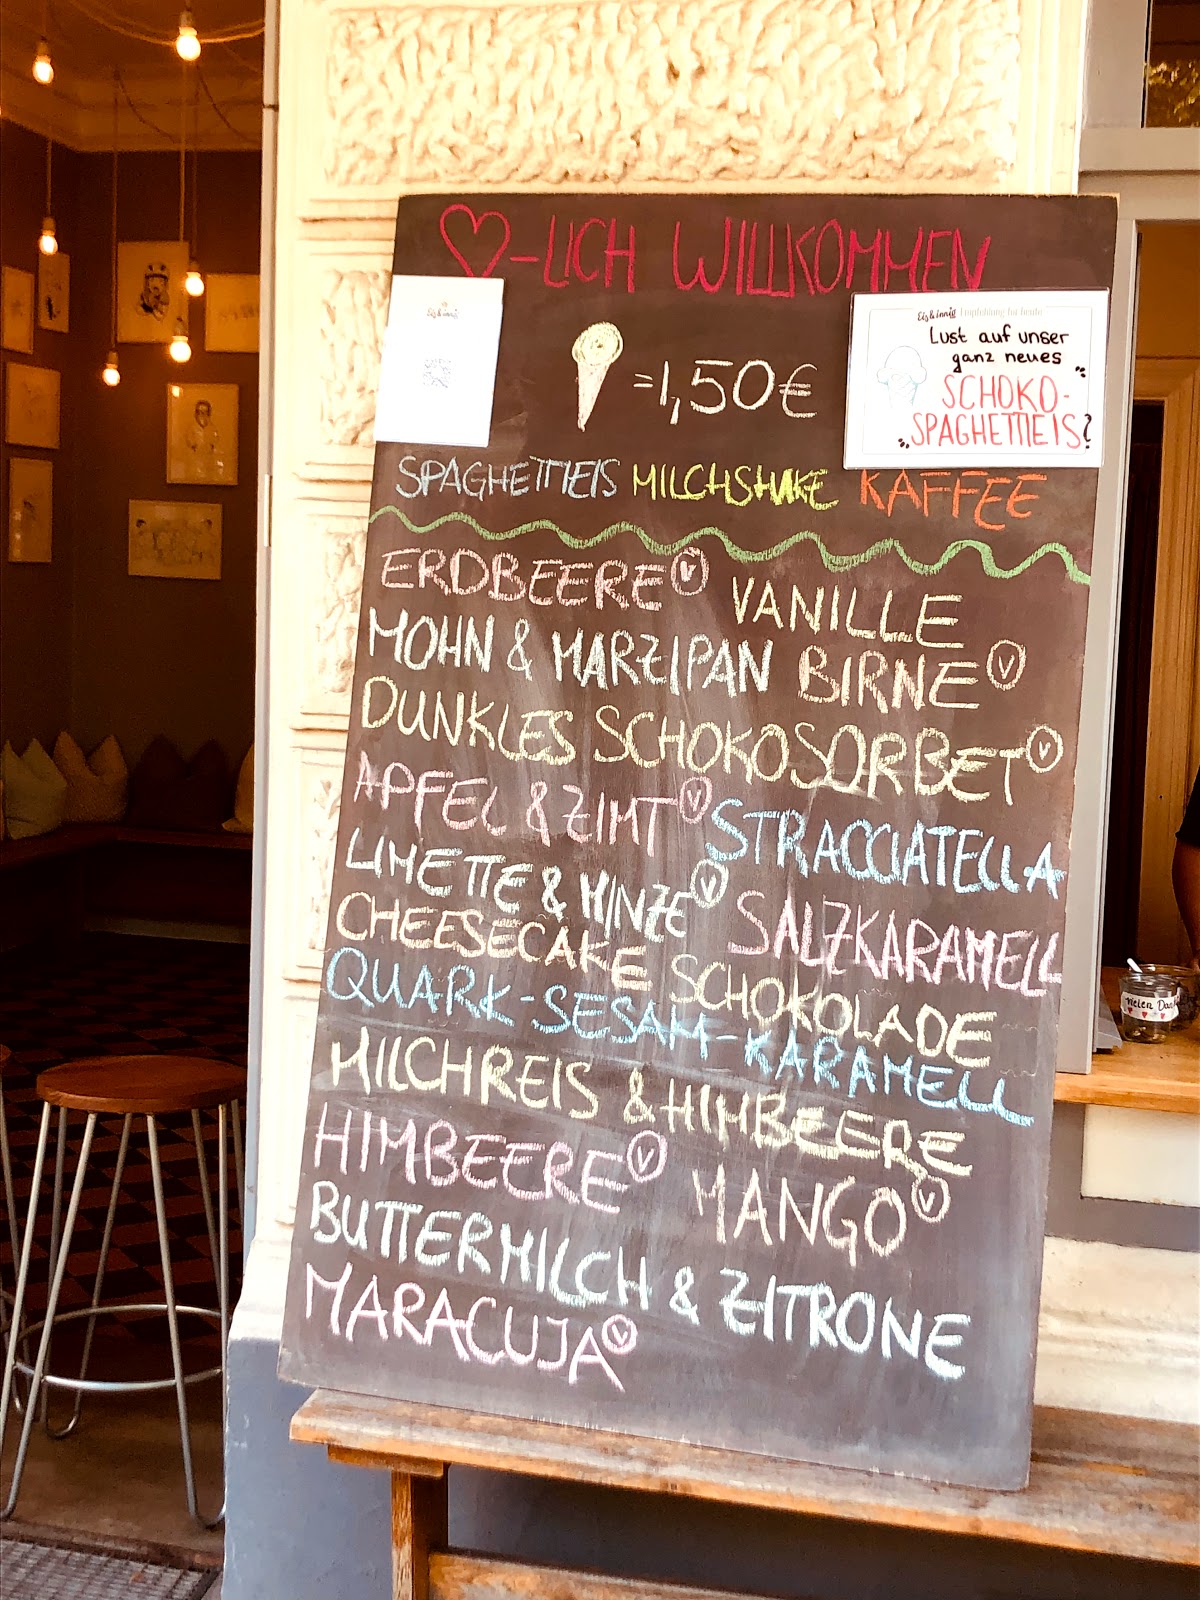 ♡-LICH WILLKOMMEN
Eis & innig
=1,50€
Eis & innig Empfehlung für heute
Lust auf unser
ganz neues
SCHOKO-
SPAGHETTIEIS?
SPAGHETTIEIS MILCHSHAKE KAFFEE
ERDBEERE Ⓥ VANILLE
MOHN & MARZIPAN BIRNE Ⓥ
DUNKLES SCHOKOSORBET Ⓥ
APFEL & ZIMT Ⓥ STRACCIATELLA
LIMETTE & MINZE Ⓥ SALZKARAMELL
CHEESECAKE SCHOKOLADE
QUARK-SESAM-KARAMELL
MILCHREIS & HIMBEERE
HIMBEERE Ⓥ MANGO Ⓥ
BUTTERMILCH & ZITRONE
MARACUJA Ⓥ
vielen Dank